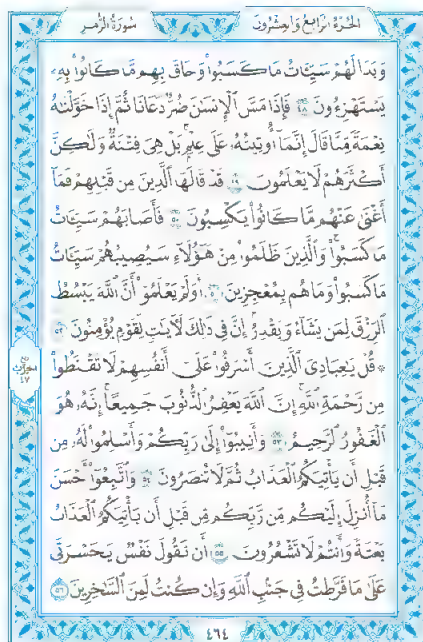 الجزء الرابع والعشرون سورة الزمر
وَبَدَا لَهُمْ سَيِّـَٔاتُ مَا كَسَبُوا۟ وَحَاقَ بِهِم مَّا كَانُوا۟ بِهِۦ
يَسْتَهْزِءُونَ ٤٨ فَإِذَا مَسَّ ٱلْإِنسَـٰنَ ضُرٌّ دَعَانَا ثُمَّ إِذَا خَوَّلْنَـٰهُ
نِعْمَةً مِّنَّا قَالَ إِنَّمَآ أُوتِيتُهُۥ عَلَىٰ عِلْمٍۭ بَلْ هِىَ فِتْنَةٌ وَلَـٰكِنَّ
أَكْثَرَهُمْ لَا يَعْلَمُونَ ٤٩ قَدْ قَالَهَا ٱلَّذِينَ مِن قَبْلِهِمْ فَمَآ
أَغْنَىٰ عَنْهُم مَّا كَانُوا۟ يَكْسِبُونَ ٥٠ فَأَصَابَهُمْ سَيِّـَٔاتُ
مَا كَسَبُوا۟ وَٱلَّذِينَ ظَلَمُوا۟ مِنْ هَـٰٓؤُلَآءِ سَيُصِيبُهُمْ سَيِّـَٔاتُ
مَا كَسَبُوا۟ وَمَا هُم بِمُعْجِزِينَ ٥١ أَوَلَمْ يَعْلَمُوٓا۟ أَنَّ ٱللَّهَ يَبْسُطُ
ٱلرِّزْقَ لِمَن يَشَآءُ وَيَقْدِرُ إِنَّ فِى ذَٰلِكَ لَـَٔايَـٰتٍ لِّقَوْمٍ يُؤْمِنُونَ ٥٢
۞ قُلْ يَـٰعِبَادِىَ ٱلَّذِينَ أَسْرَفُوا۟ عَلَىٰٓ أَنفُسِهِمْ لَا تَقْنَطُوا۟
مِن رَّحْمَةِ ٱللَّهِ إِنَّ ٱللَّهَ يَغْفِرُ ٱلذُّنُوبَ جَمِيعًا إِنَّهُۥ هُوَ
ٱلْغَفُورُ ٱلرَّحِيمُ ٥٣ وَأَنِيبُوٓا۟ إِلَىٰ رَبِّكُمْ وَأَسْلِمُوا۟ لَهُۥ مِن
قَبْلِ أَن يَأْتِيَكُمُ ٱلْعَذَابُ ثُمَّ لَا تُنصَرُونَ ٥٤ وَٱتَّبِعُوٓا۟ أَحْسَنَ
مَآ أُنزِلَ إِلَيْكُم مِّن رَّبِّكُم مِّن قَبْلِ أَن يَأْتِيَكُمُ ٱلْعَذَابُ
بَغْتَةً وَأَنتُمْ لَا تَشْعُرُونَ ٥٥ أَن تَقُولَ نَفْسٌ يَـٰحَسْرَتَىٰ
عَلَىٰ مَا فَرَّطتُ فِى جَنۢبِ ٱللَّهِ وَإِن كُنتُ لَمِنَ ٱلسَّـٰخِرِينَ ٥٦
الحزب
٤٧
٤٦٤